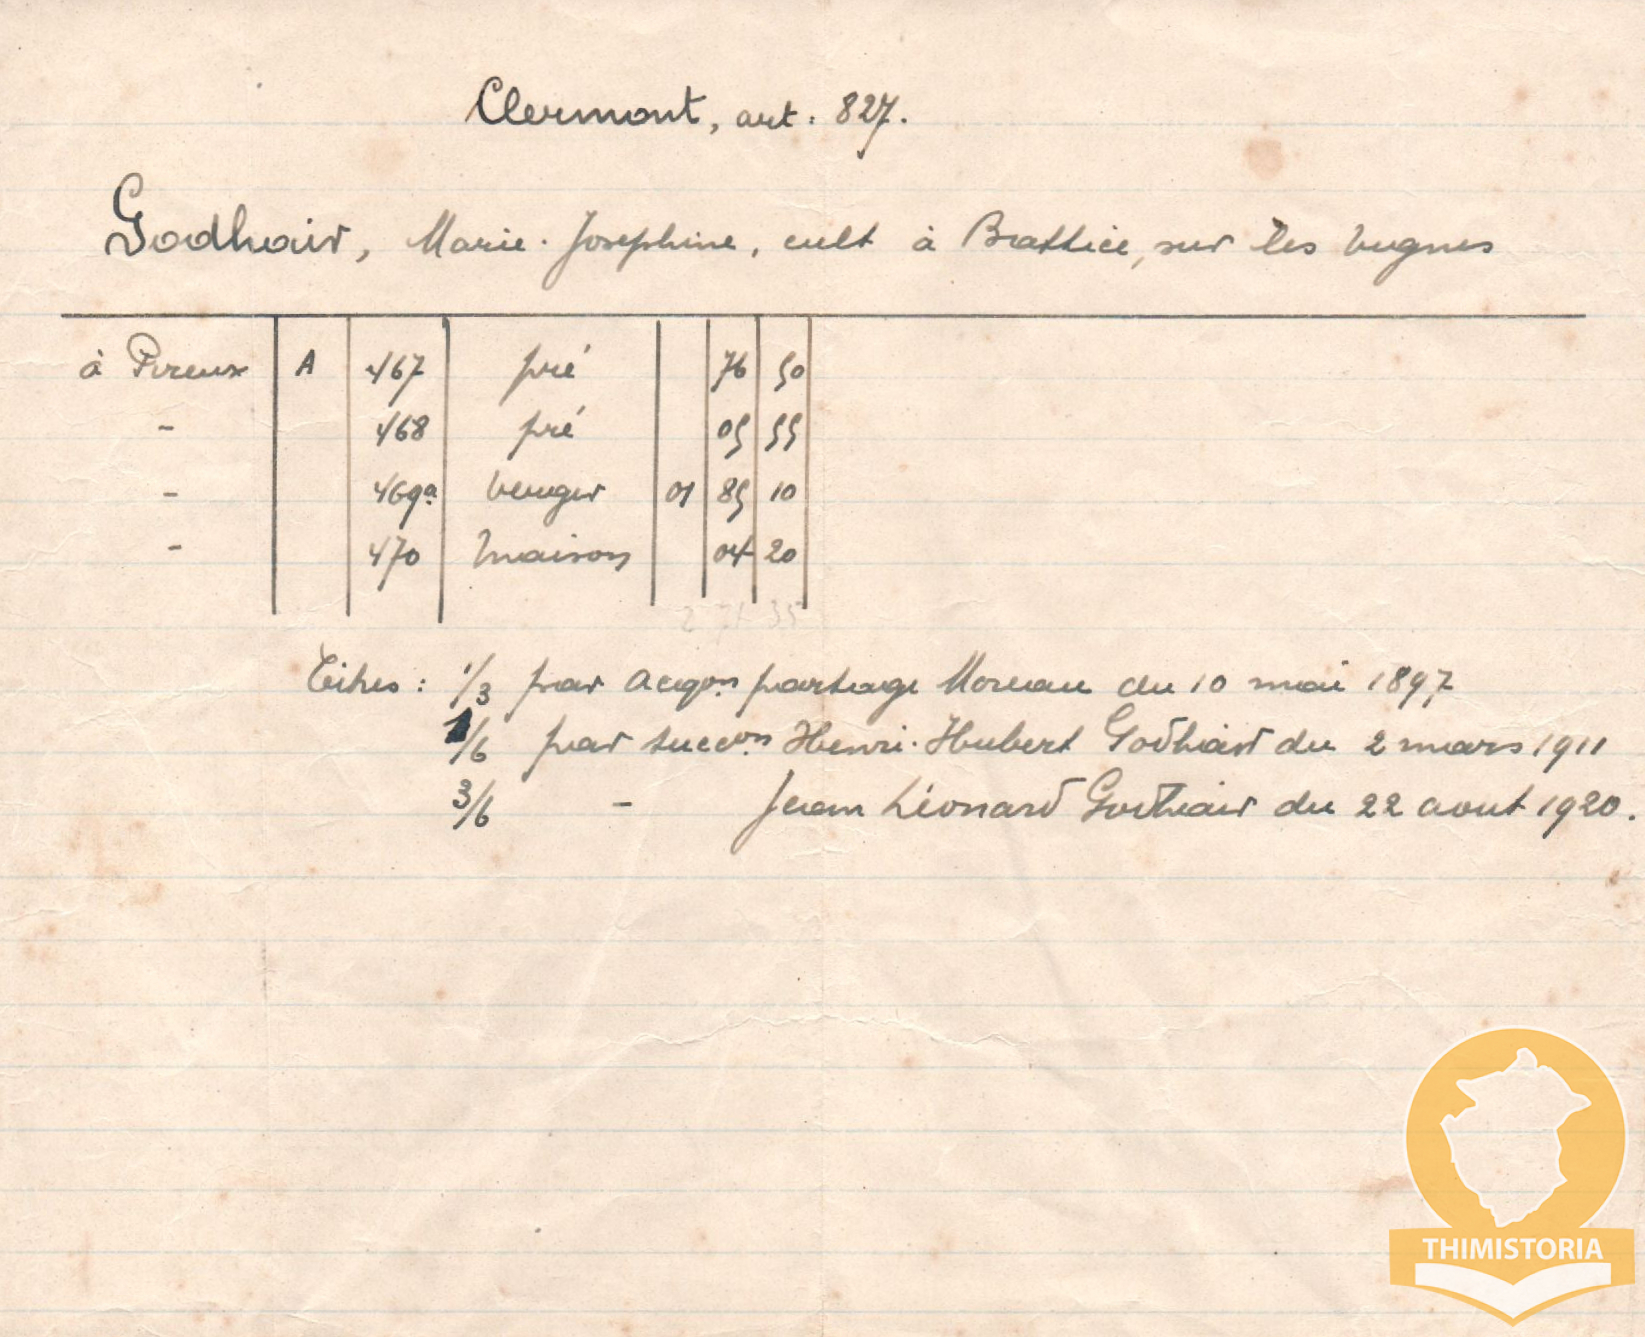 Clermont, art. 827.
Godhair, Marie-Joséphine, cult à Battice, sur les bugnes
à Pireux A 467 pré 76 50
- 468 pré 05 55
- 469a verger 01 85 10
- 470 maison 04 20
2 71 35
Titres : 1/3 par acqon partage Moreau du 10 mai 1897
1/6 par succon Henri-Hubert Godhair du 2 mars 1911
3/6 - Jean Léonard Godhair du 22 aout 1920.
THIMISTORIA